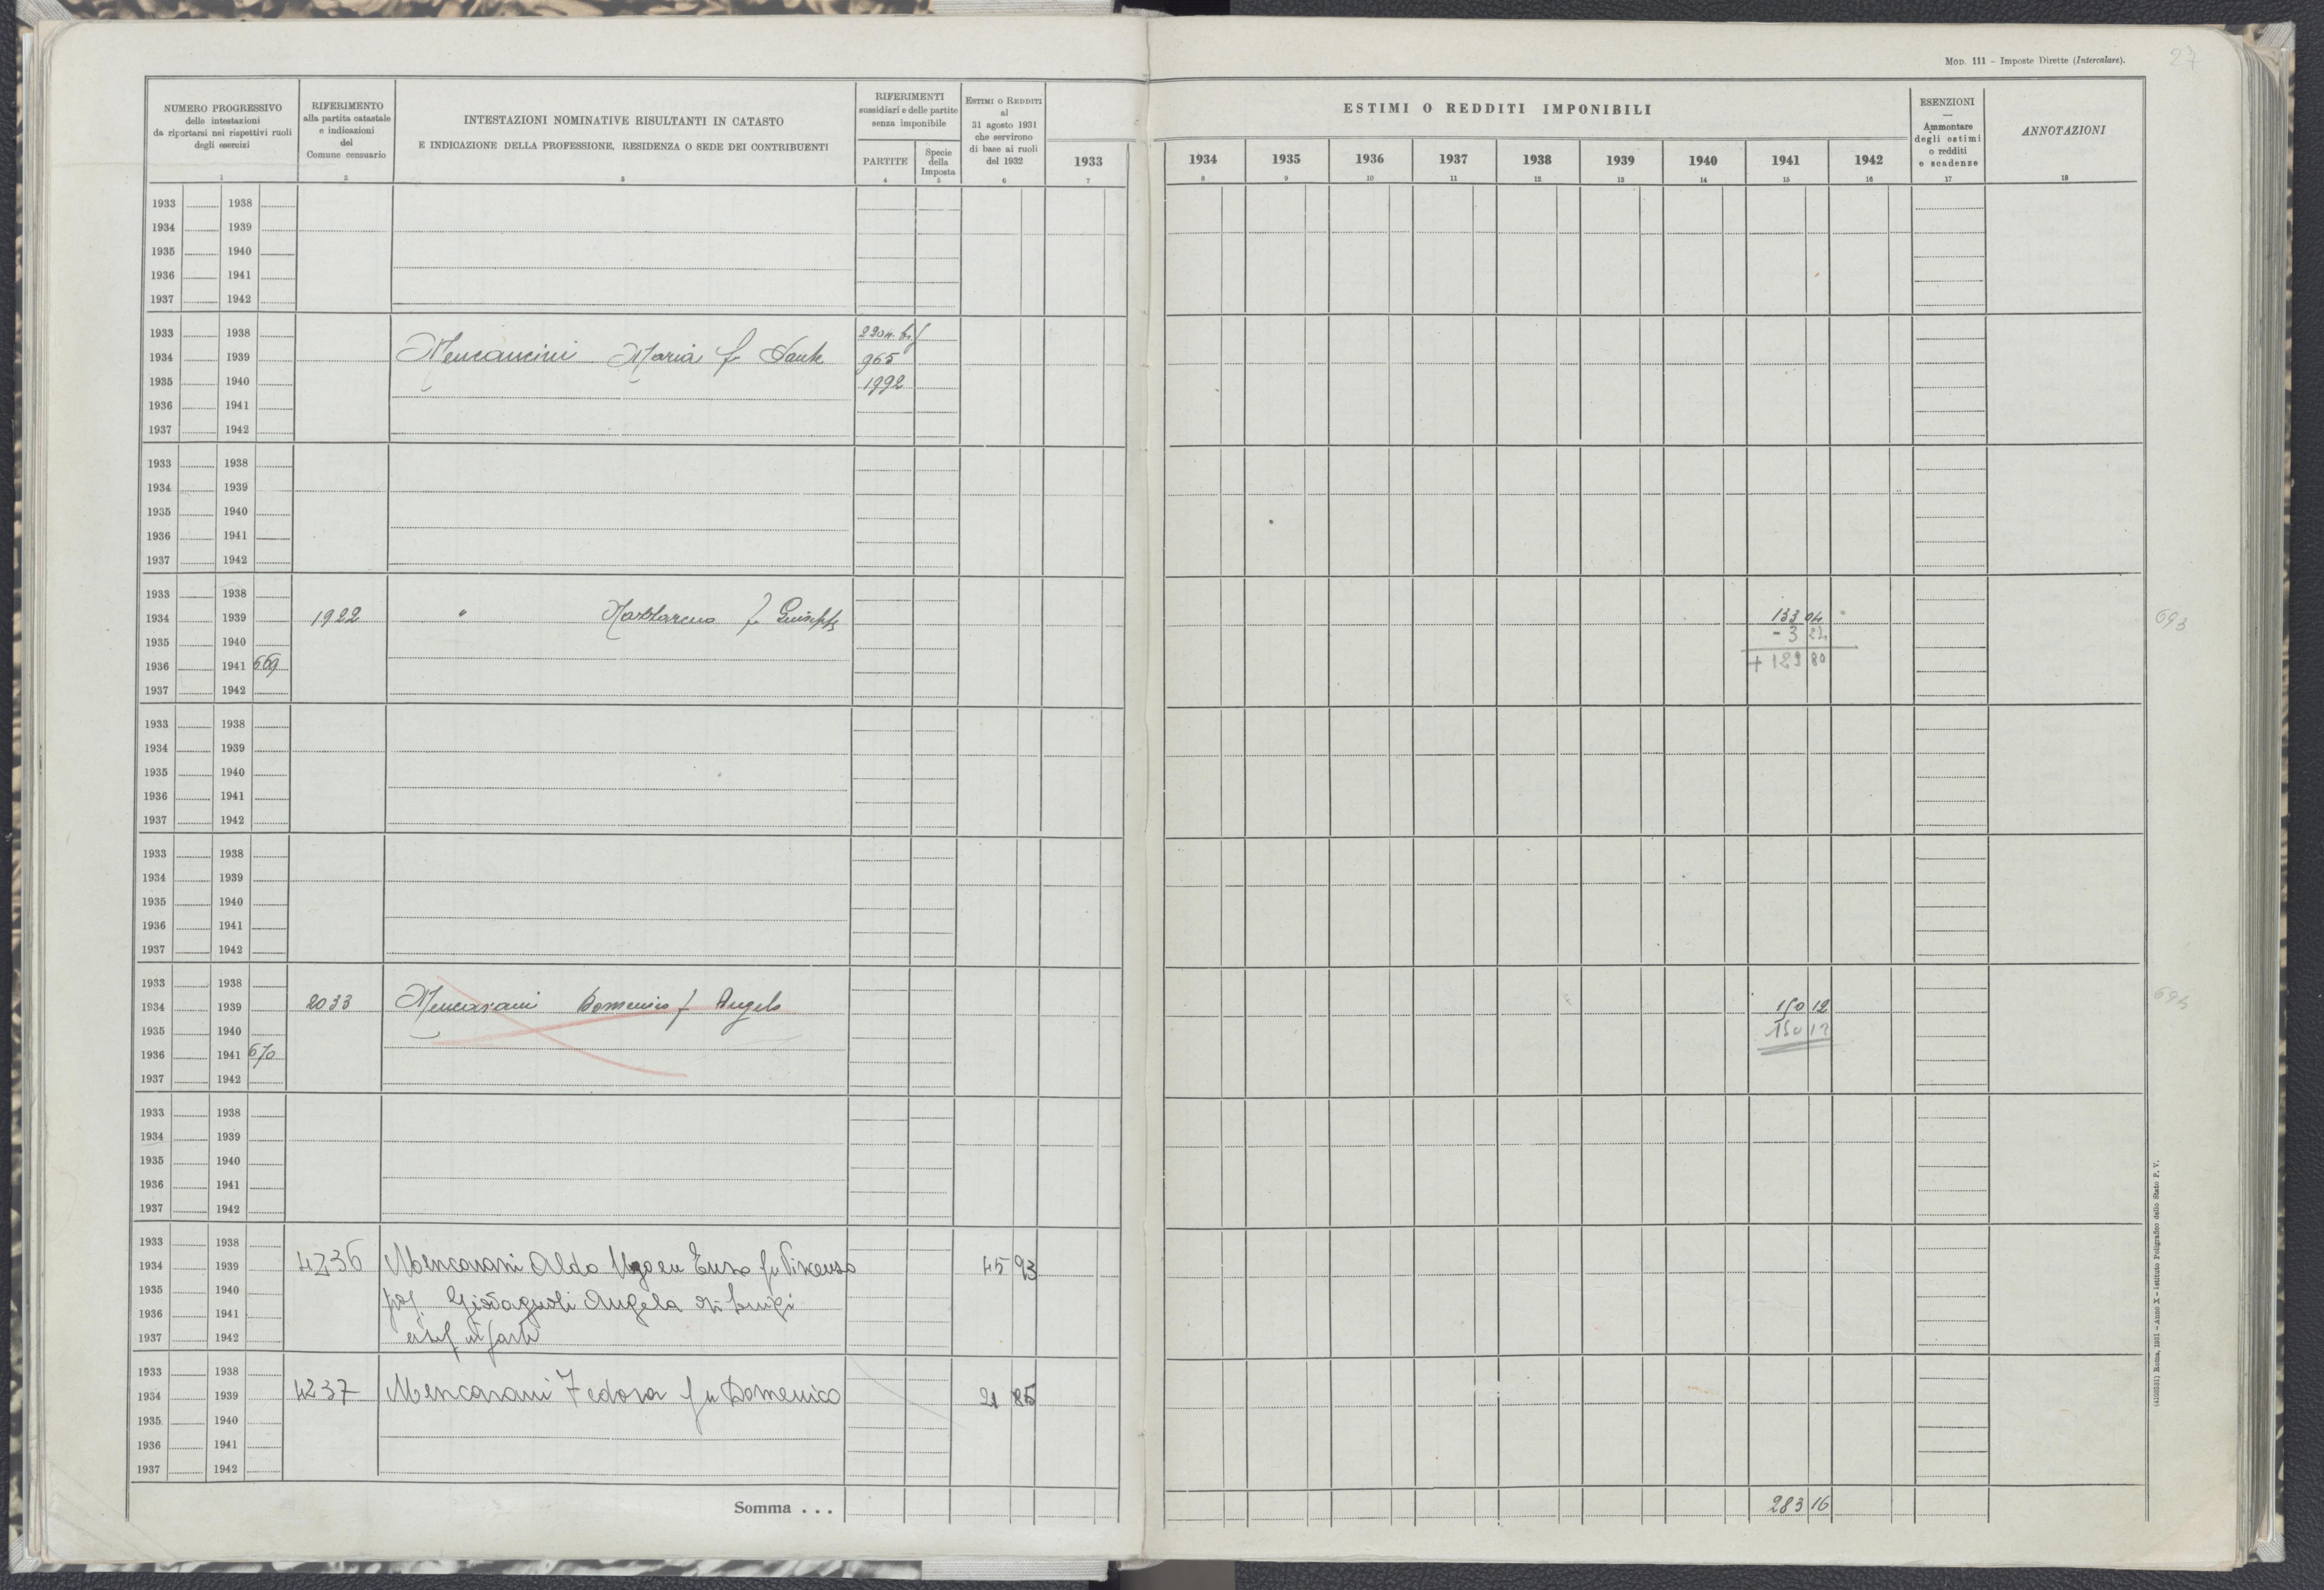 MOD. 111 – Imposte Dirette (Intercalare).
27
NUMERO PROGRESSIVO
delle intestazioni
da riportarsi nei rispettivi ruoli
degli esercizi
1
RIFERIMENTO
alla partita catastale
e indicazioni
del
Comune censuario
2
INTESTAZIONI NOMINATIVE RISULTANTI IN CATASTO
E INDICAZIONE DELLA PROFESSIONE, RESIDENZA O SEDE DEI CONTRIBUENTI
3
RIFERIMENTI
sussidiari e delle partite
senza imponibile
PARTITE
4
Specie
della
Imposta
5
ESTIMI O REDDITI
al
31 agosto 1931
che servirono
di base ai ruoli
del 1932
6
1933
7
ESTIMI O REDDITI IMPONIBILI
1934 1935 1936 1937 1938 1939 1940 1941 1942
8 9 10 11 12 13 14 15 16
ESENZIONI
—
Ammontare
degli estimi
o redditi
e scadenze
17
ANNOTAZIONI
18
1933 1938
1934 1939
1935 1940
1936 1941
1937 1942
1933 1938
1934 1939 Mencancini Maria f Sante 965
1935 1940 1992
1936 1941
1937 1942
1933 1938
1934 1939
1935 1940
1936 1941
1937 1942
1933 1938
1934 1939 1922 " Nazzareno f Giuseppe 133 04 693
1935 1940 - 3 24
1936 1941 669 + 129 80
1937 1942
1933 1938
1934 1939
1935 1940
1936 1941
1937 1942
1933 1938
1934 1939
1935 1940
1936 1941
1937 1942
1933 1938
1934 1939 2033 Mencarani Domenico f Angelo 150 12 694
1935 1940 150 12
1936 1941 670
1937 1942
1933 1938
1934 1939
1935 1940
1936 1941
1937 1942
1933 1938
1934 1939 4236 Mencarani Aldo Enzo fu Vincenzo 45 93
1935 1940
1936 1941 Angela di Luigi
1937 1942
1933 1938
1934 1939 4237 Mencarani Fedora fu Domenico 21 85
1935 1940
1936 1941
1937 1942
Somma . . . 283 16
(4102551) Roma, 1931 – Anno X – Istituto Poligrafico dello Stato P. V.